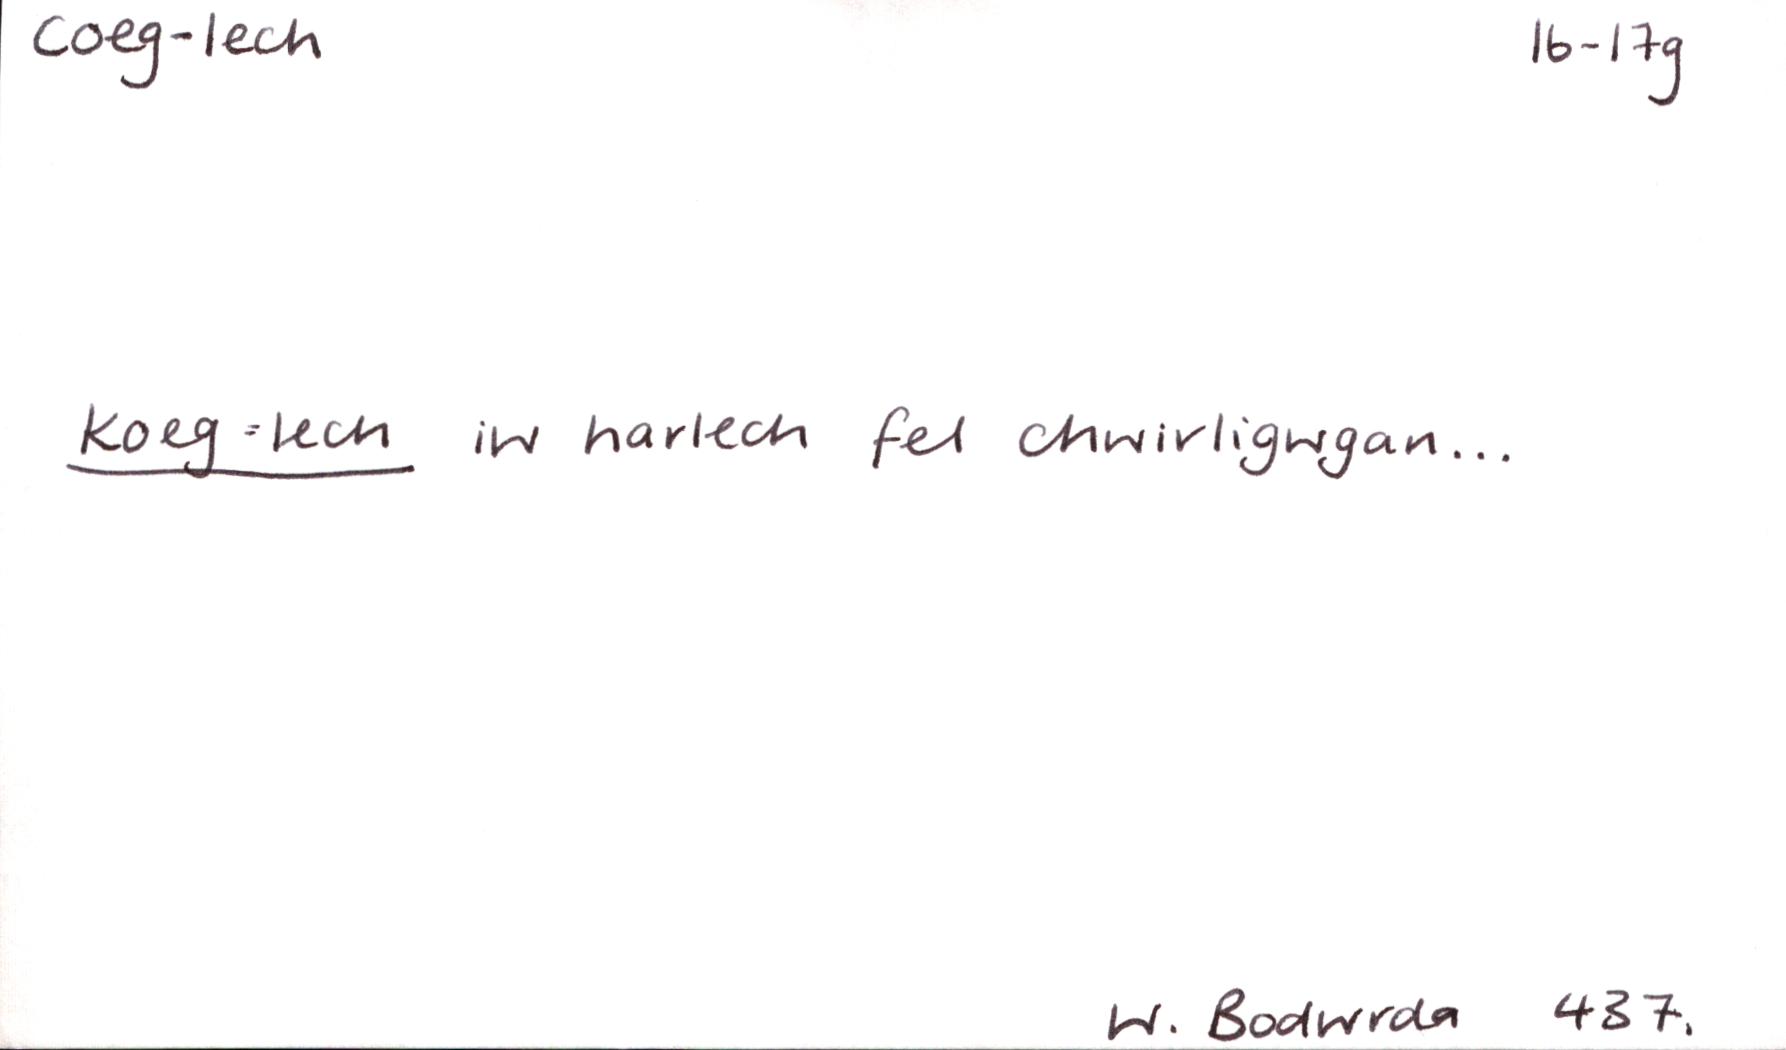 Coeg-lech 16-17g
Koeg=lech iw harlech fel chwirligwgan...
W. Bodwrda 437.